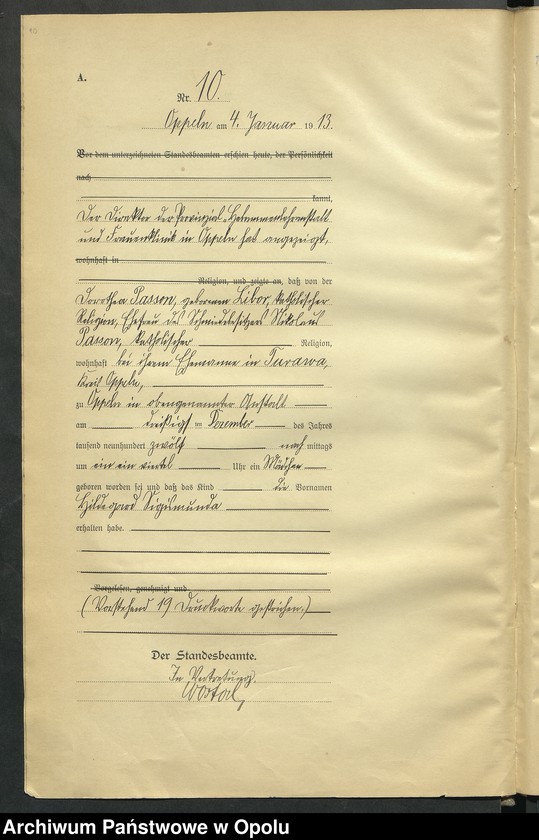 10
A.
Nr. 10.
Oppeln am 4. Januar 1913.
Vor dem unterzeichneten Standesbeamten erschien heute, der Persönlichkeit
nach
kannt,
Der Direktor der Provinzial-Hebammenlehranstalt
und Frauenklinik in Oppeln hat angezeigt,
wohnhaft in
Religion, und zeigte an, daß von der
Dorothea Passon, geborenen Libor, katholischer
Religion, Ehefrau des Schmiedebesitzers Nikolaus
Passon, katholischer Religion,
wohnhaft bei ihrem Ehemanne in Turawa,
Kreis Oppeln,
zu Oppeln in obengenannter Anstalt
am dreißigsten Dezember des Jahres
tausend neunhundert zwölf nachmittags
um ein ein viertel Uhr ein Mädchen
geboren worden sei und daß das Kind die Vornamen
Hildegard Sigismunda
erhalten habe.
Vorgelesen, genehmigt und
(Vorstehend 19 Druckworte gestrichen.)
Der Standesbeamte.
In Vertretung.
Archiwum Państwowe w Opolu